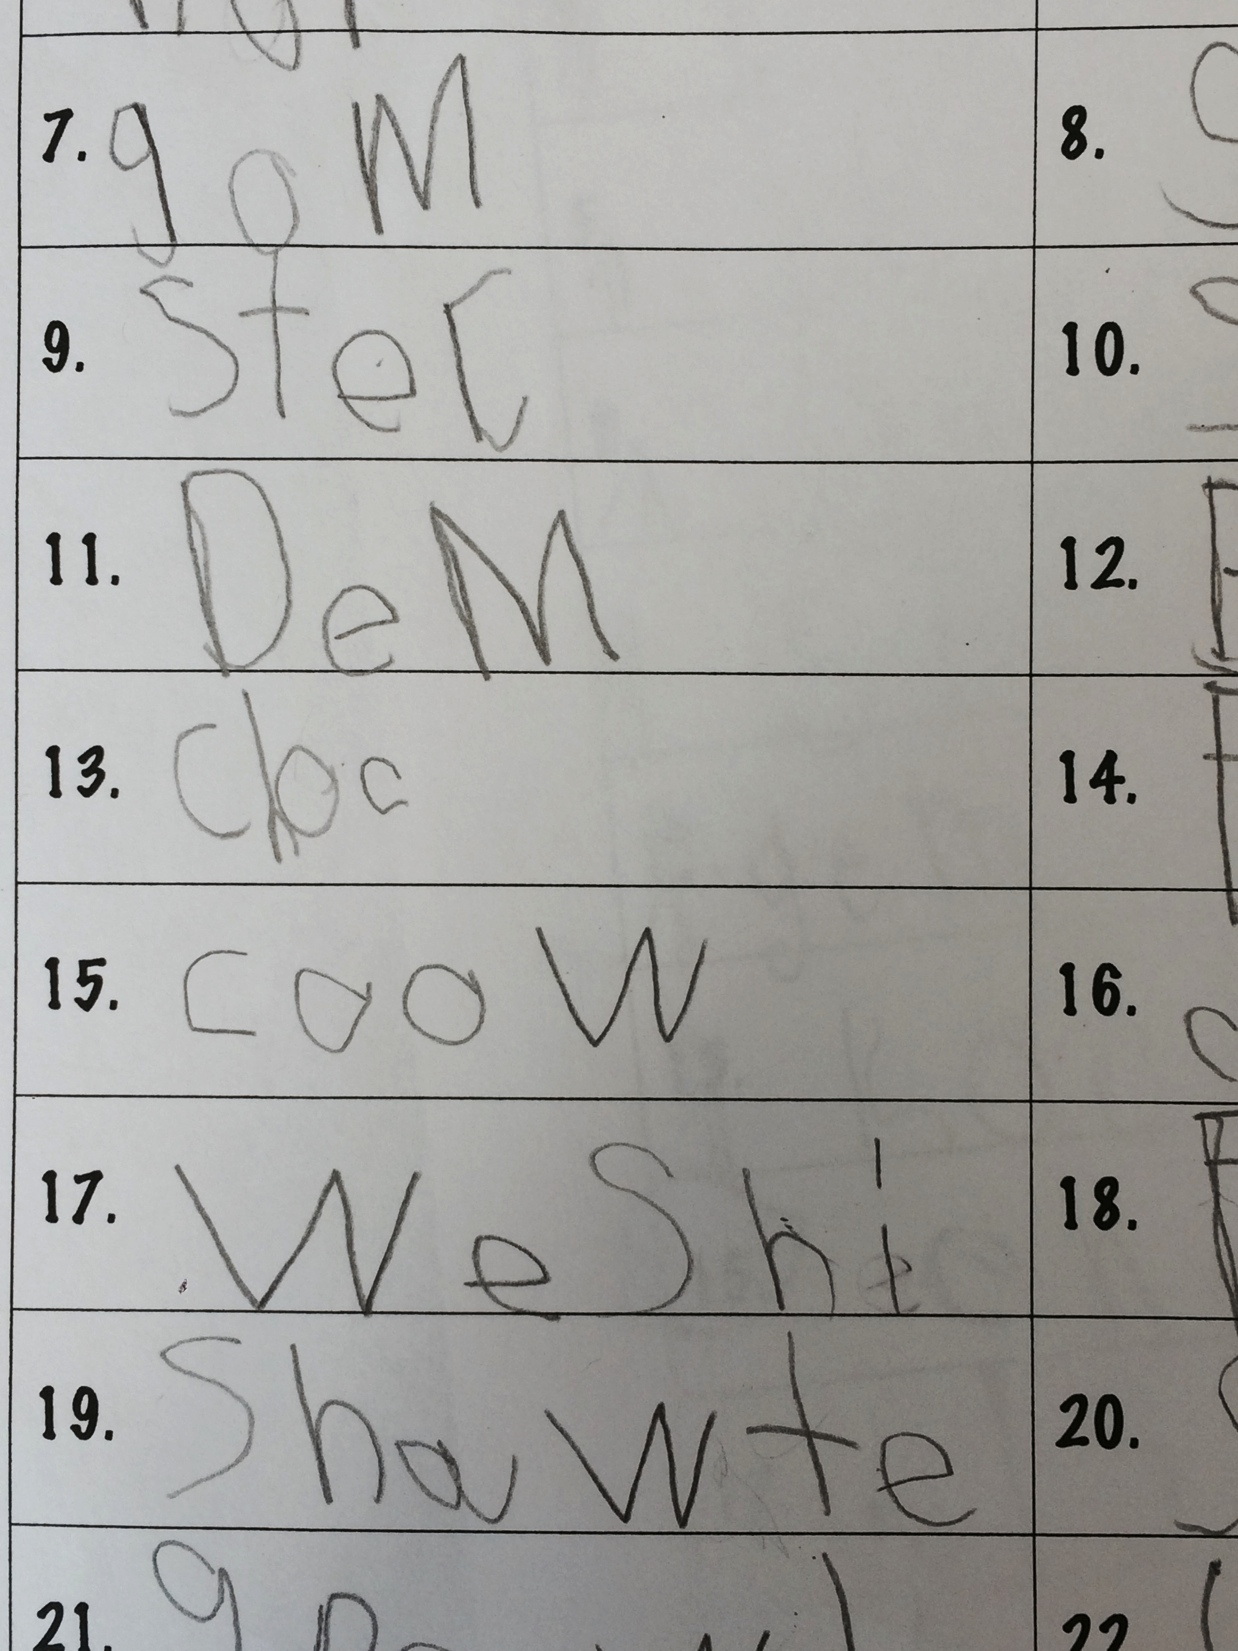 7. goM 8.
9. Stec 10.
11. DeM 12.
13. choc 14.
15. caoW 16.
17. WeShi 18.
19. ShaWte 20.
21. 22.